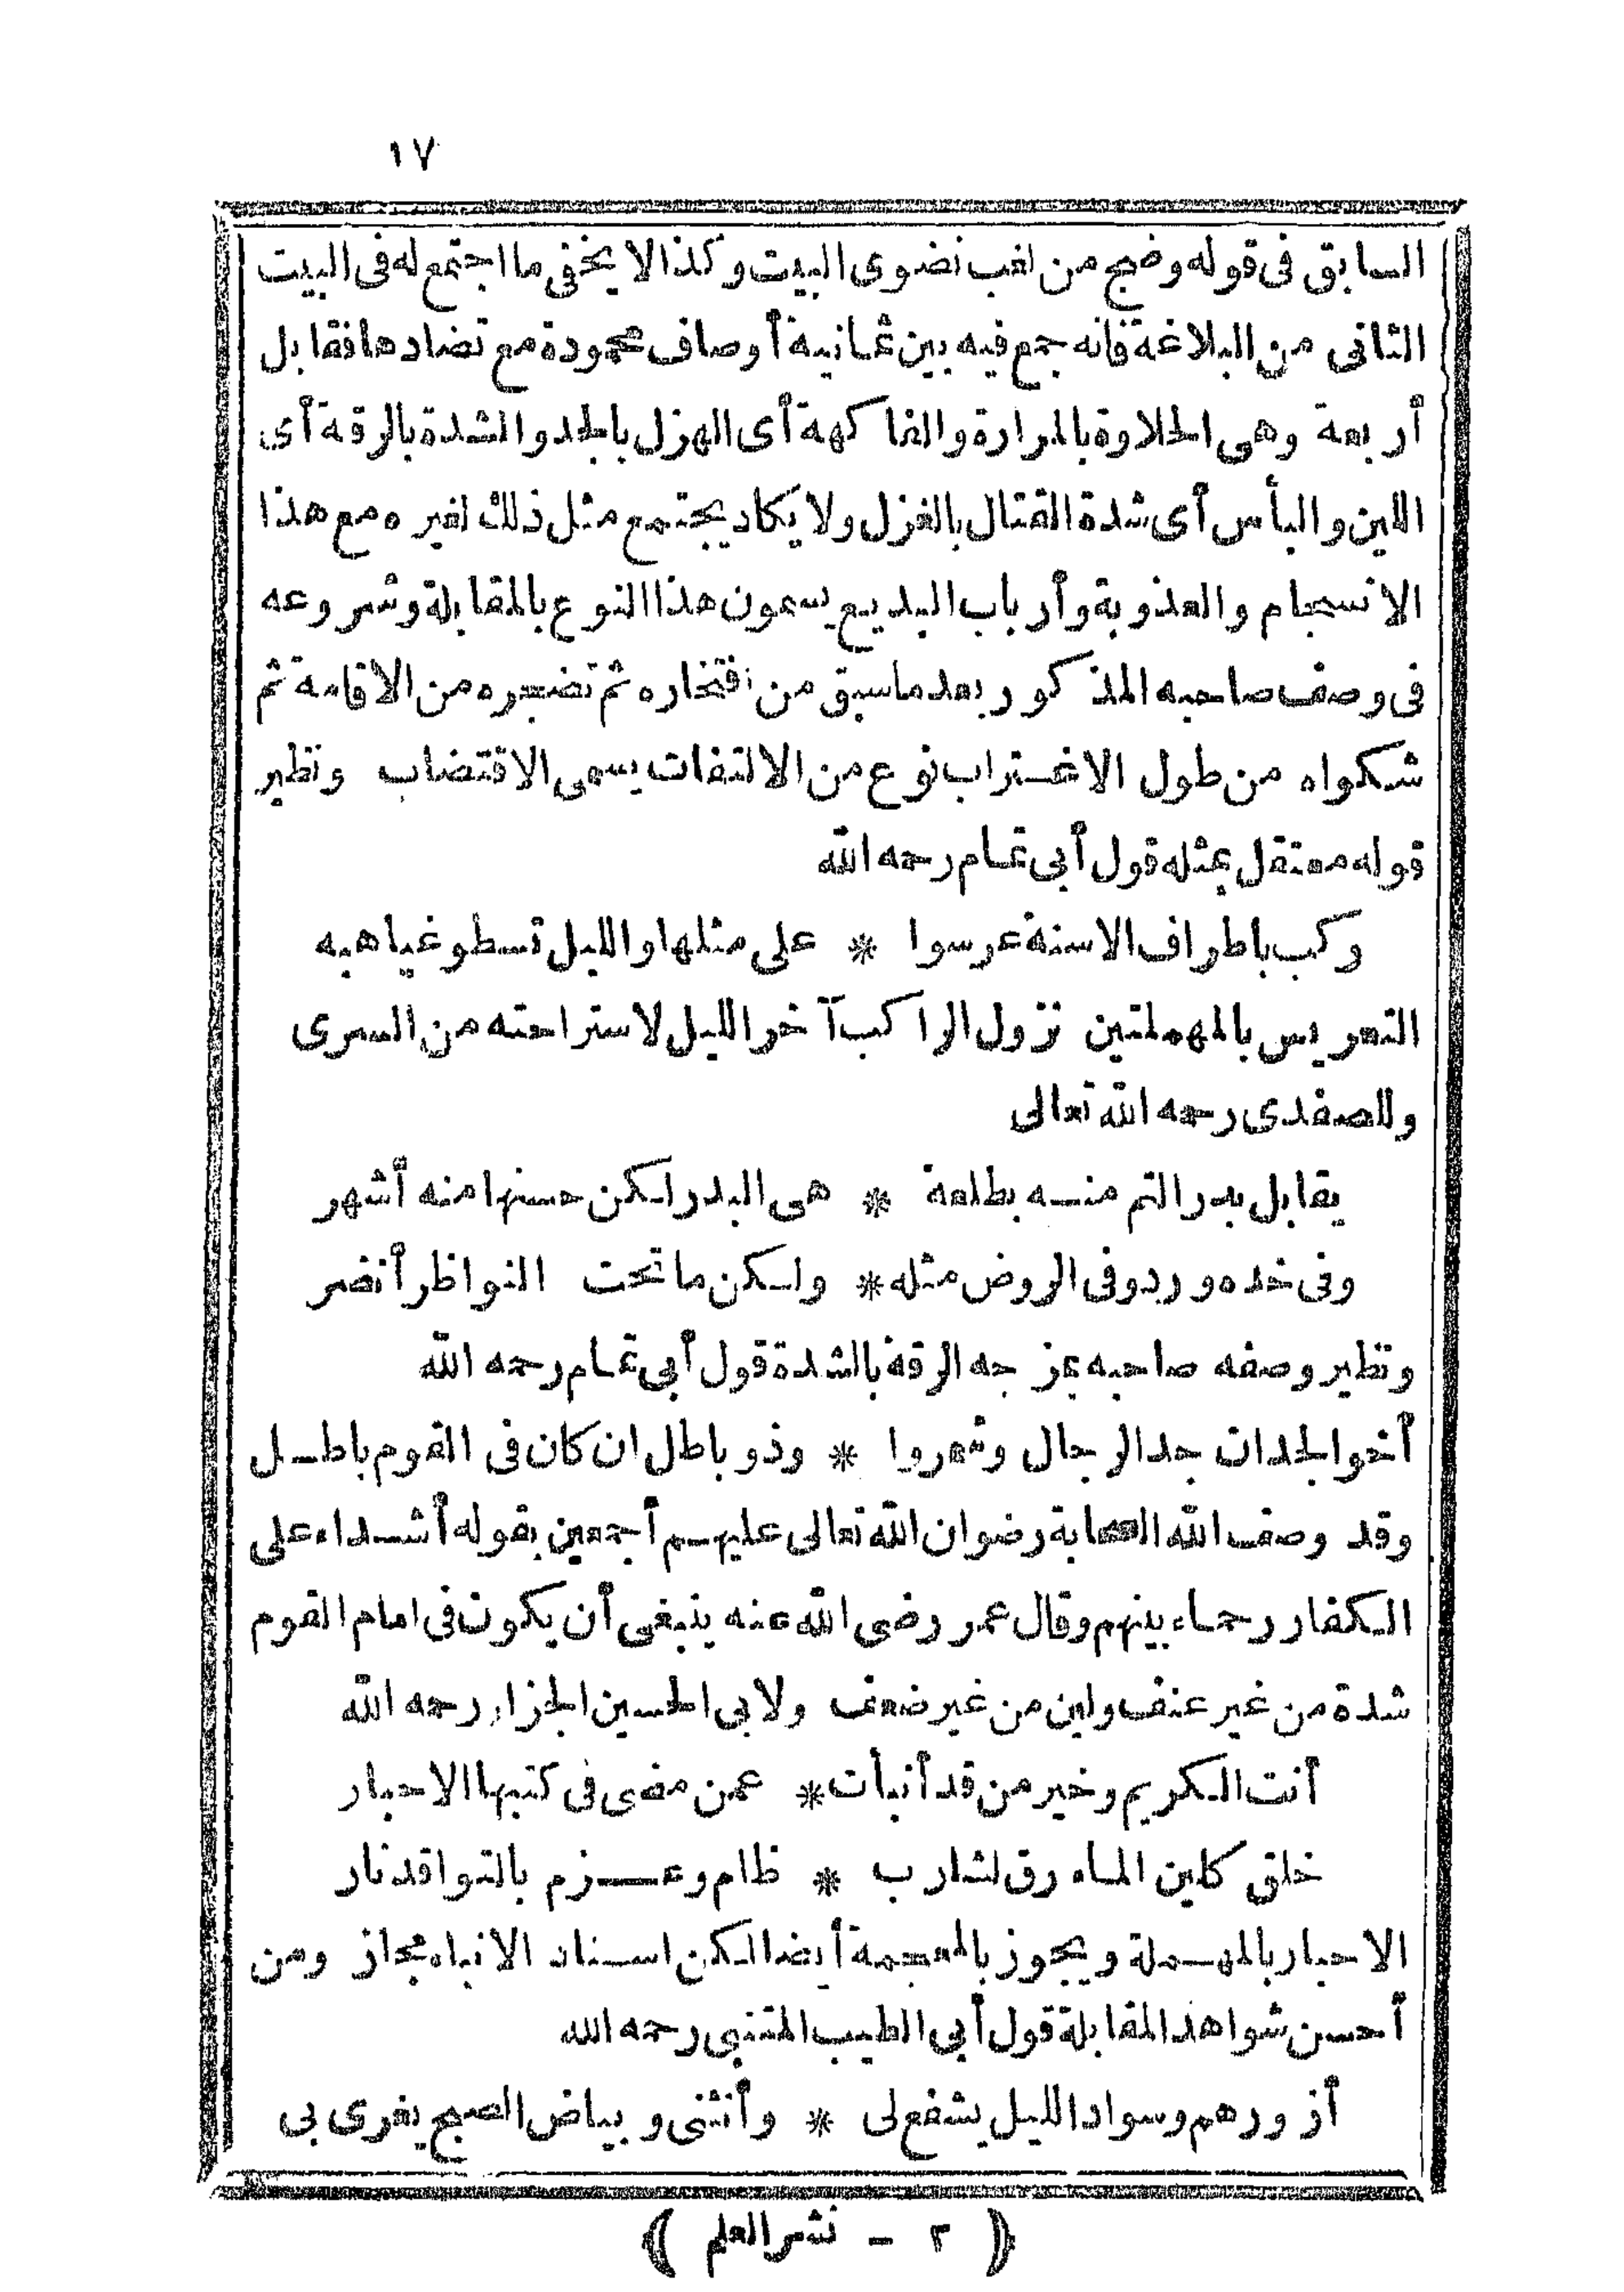 ١٧
السابق فى قوله وضج من لغب نضوى البيت وكذا لا يخفى ما اجتمع له فى البيت
الثانى من البلاغة فانه جمع فيه بين ثمانية أوصاف محمودة مع تضادها فقابل
أربعة وهى الحلاوة بالمرارة والفاكهة أى الهزل بالجد والشدة بالرقة أى
اللين والبأس أى شدة القتال بالغزل ولا يكاد يجتمع مثل ذلك لغيره مع هذا
الانسجام والعذوبة وأرباب البديع يسمون هذا النوع بالمقابلة وشروعه
فى وصف صاحبه المذكور بعد ما سبق من افتخاره ثم تضجره من الاقامة ثم
شكواه من طول الاغتراب نوع من الالتفات يسمى الاقتضاب ونظير
قوله معتقل بمثله قول أبى تمام رحمه الله
وركب باطراف الاسنة عرسوا * على مثلها والليل تسطو غياهبه
التعريس بالمهملتين نزول الراكب آخر الليل لاستراحته من السرى
وللصفدى رحمه الله تعالى
يقابل بدر التم منه بطلعة * هى البدر لكن حسنها منه أشهر
وفى خده ورد وفى الروض مثله * ولكن ما تحت النواظر أنضر
ونظير وصفه صاحبه بمزجه الرقة بالشدة قول أبى تمام رحمه الله
أخو الجد ان جد الرجال وشمروا * وذو باطل ان كان فى القوم باطل
وقد وصف الله الصحابة رضوان الله تعالى عليهم أجمعين بقوله أشداء على
الكفار رحماء بينهم وقال عمر رضى الله عنه ينبغى أن يكون فى امام القوم
شدة من غير عنف ولين من غير ضعف ولابى الحسين الجزار رحمه الله
أنت الكريم وخير من قد أنبأت * عمن مضى فى كتبها الاحبار
خلق كلين الماء رق لشارب * ظام وعزم بالتواقد نار
الاحبار بالمهملة ويجوز بالمعجمة أيضا لكن اسناد الانباء مجاز ومن
أحسن شواهد المقابلة قول أبى الطيب المتنبى رحمه الله
أزورهم وسواد الليل يشفع لى * وأنثنى وبياض الصبح يغرى بى
(٢ - نشر العلم)